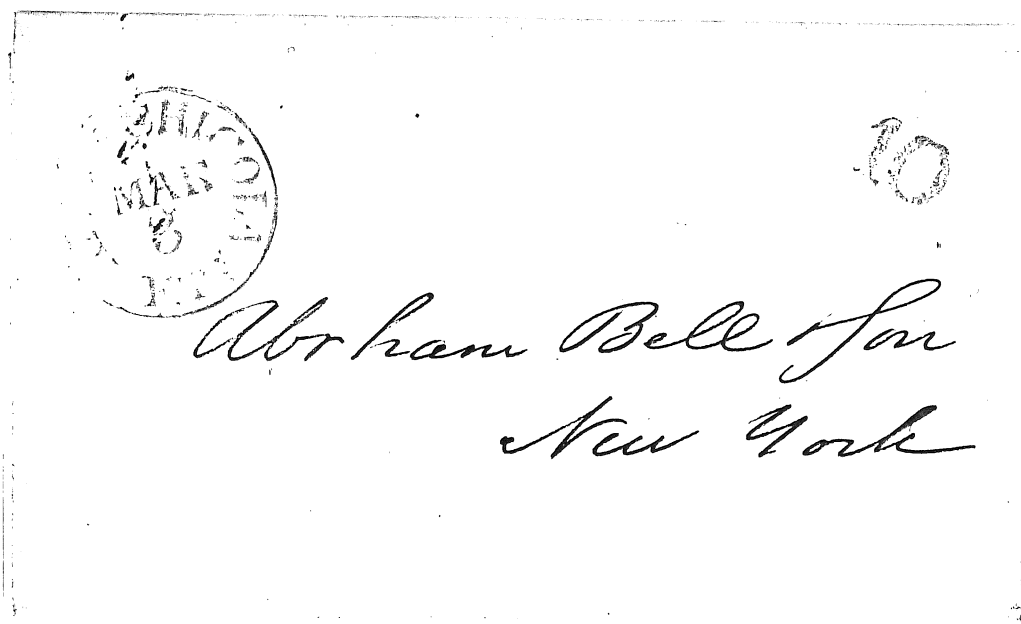 MAR
8
10
Abraham Bell & Son
New York